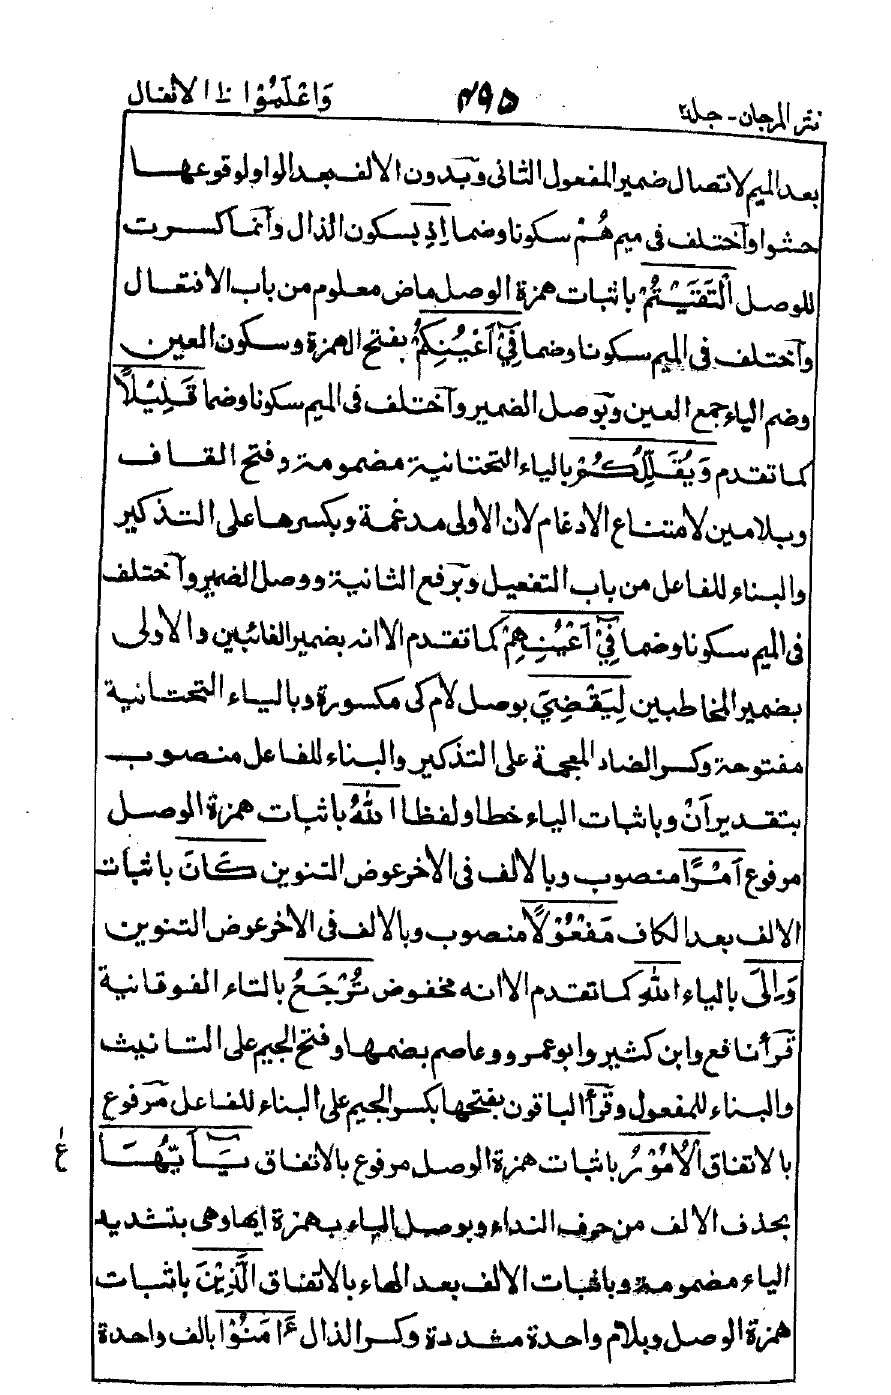 نثر المرجان - جلد٢ ٤٩٥ وَاعْلَمُوْا ١٠ الانفال
بعد الميم لاتصال ضمير المفعول الثانى وبدون الالف بعد الواو لوقوعها
حشوا واختلف فى ميم هُمْ سكونا وضما اِذِ بسكون الذال وانما كسرت
للوصل الْتَقَيْتُمْ باثبات همزة الوصل ماض معلوم من باب الافتعال
واختلف فى الميم سكونا وضما فِىْٓ اَعْيُنِكُمْ بفتح الهمزة وسكون العين
وضم الياء جمع العين وبوصل الضمير واختلف فى الميم سكونا وضما قَلِيْلًا
كما تقدم وَيُقَلِّلُكُمْ بالياء التحتانية مضمومة وفتح القاف
وبلامين لامتناع الادغام لان الاولى مدغمة وبكسرها على التذكير
والبناء للفاعل من باب التفعيل وبرفع الثانية ووصل الضمير واختلف
فى الميم سكونا وضما فِىْٓ اَعْيُنِهِمْ كما تقدم الا انه بضمير الغائبين والاولى
بضمير المخاطبين لِيَقْضِىَ بوصل لام كى مكسورة وبالياء التحتانية
مفتوحة وكسر الضاد المعجمة على التذكير والبناء للفاعل منصوب
بتقدير اَنْ وباثبات الياء خطا ولفظا اللهُ باثبات همزة الوصل
مرفوع اَمْرًا منصوب وبالالف فى الاخر عوض التنوين كَانَ باثبات
الالف بعد الكاف مَفْعُوْلًا منصوب وبالالف فى الاخر عوض التنوين
وَاِلَى بالياء اللهِ كما تقدم الا انه مخفوض تُرْجَعُ بالتاء الفوقانية
قرأ نافع وابن كثير وابو عمرو وعاصم بضمها وفتح الجيم على التانيث
والبناء للمفعول وقرأ الباقون بفتحها بكسر الجيم على البناء للفاعل مرفوع
بالاتفاق الْاُمُوْرُ باثبات همزة الوصل مرفوع بالاتفاق يٰٓاَيُّهَا
ع
بحذف الالف من حرف النداء وبوصل الياء بهمزة ايها وهى بتشديد
الياء مضمومة وباثبات الالف بعد الهاء بالاتفاق الَّذِيْنَ باثبات
همزة الوصل وبلام واحدة مشددة وكسر الذال ءَامَنُوْا بالف واحدة